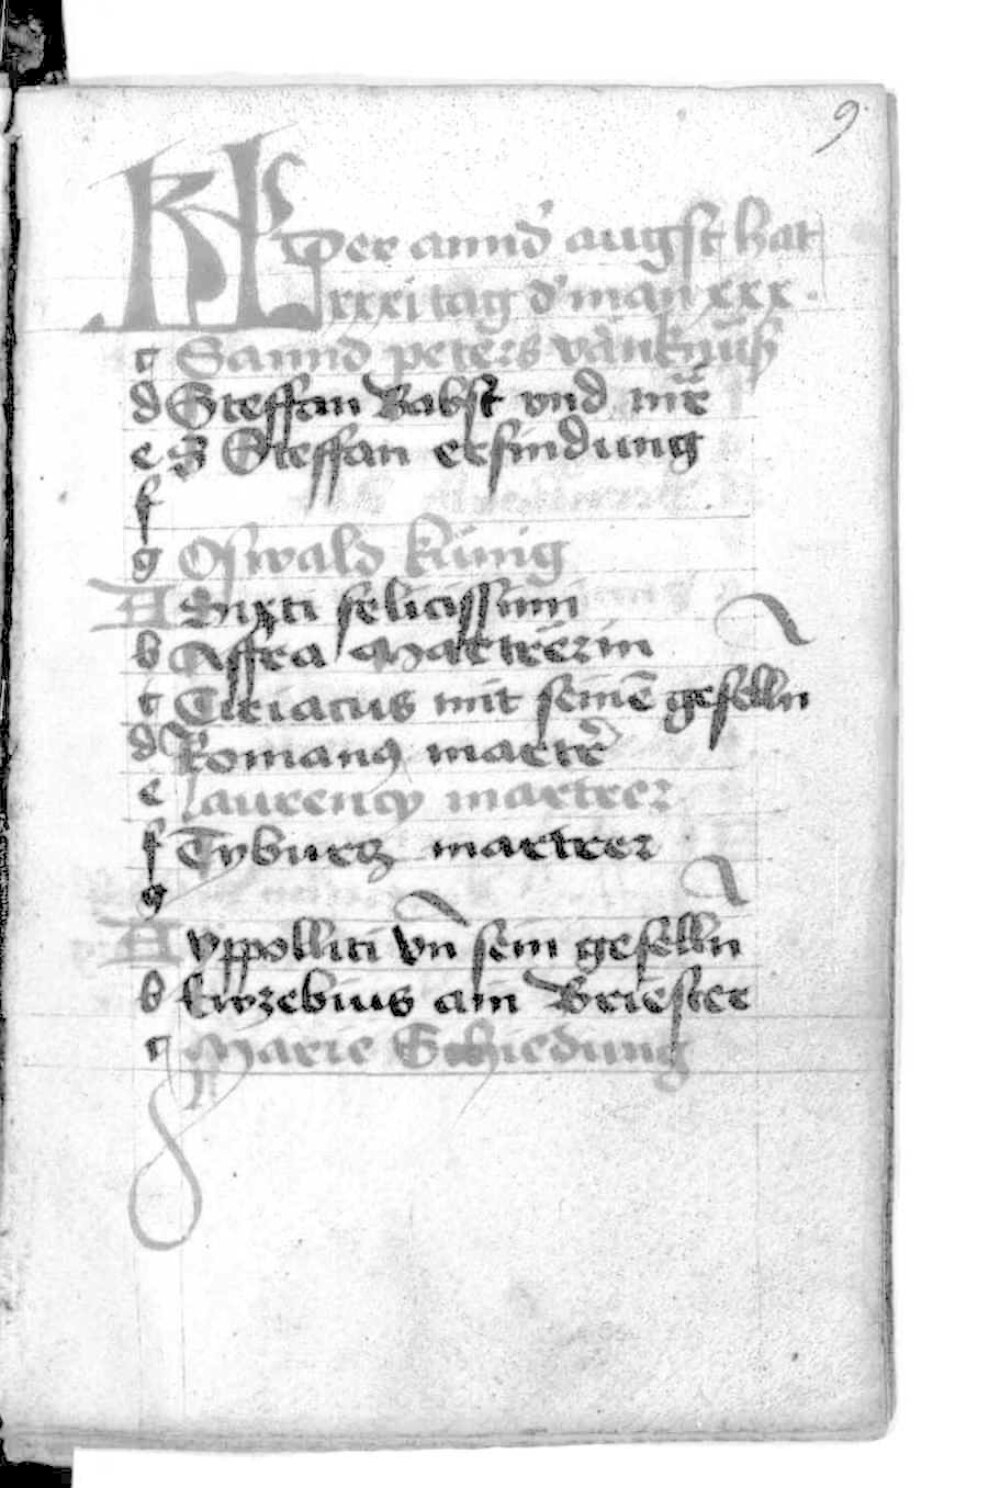 9
KL Der annd' augst hat
xxxi tag d' man xxx.
c Sannd peters vanknuss
d Steffan Babst vnd mr̄
e S Steffan erfindung
f
g Oswald künig
A Sixti felicissimi
b Affra Martrerin
c Ciriacus mit seinē geselln
d Romanus martrer
e laurency martrer
f Tyburcz martrer
g
A yppolliti vn̄ sein geselln
b Ewzebius ain Briester
c Marie Schiedung